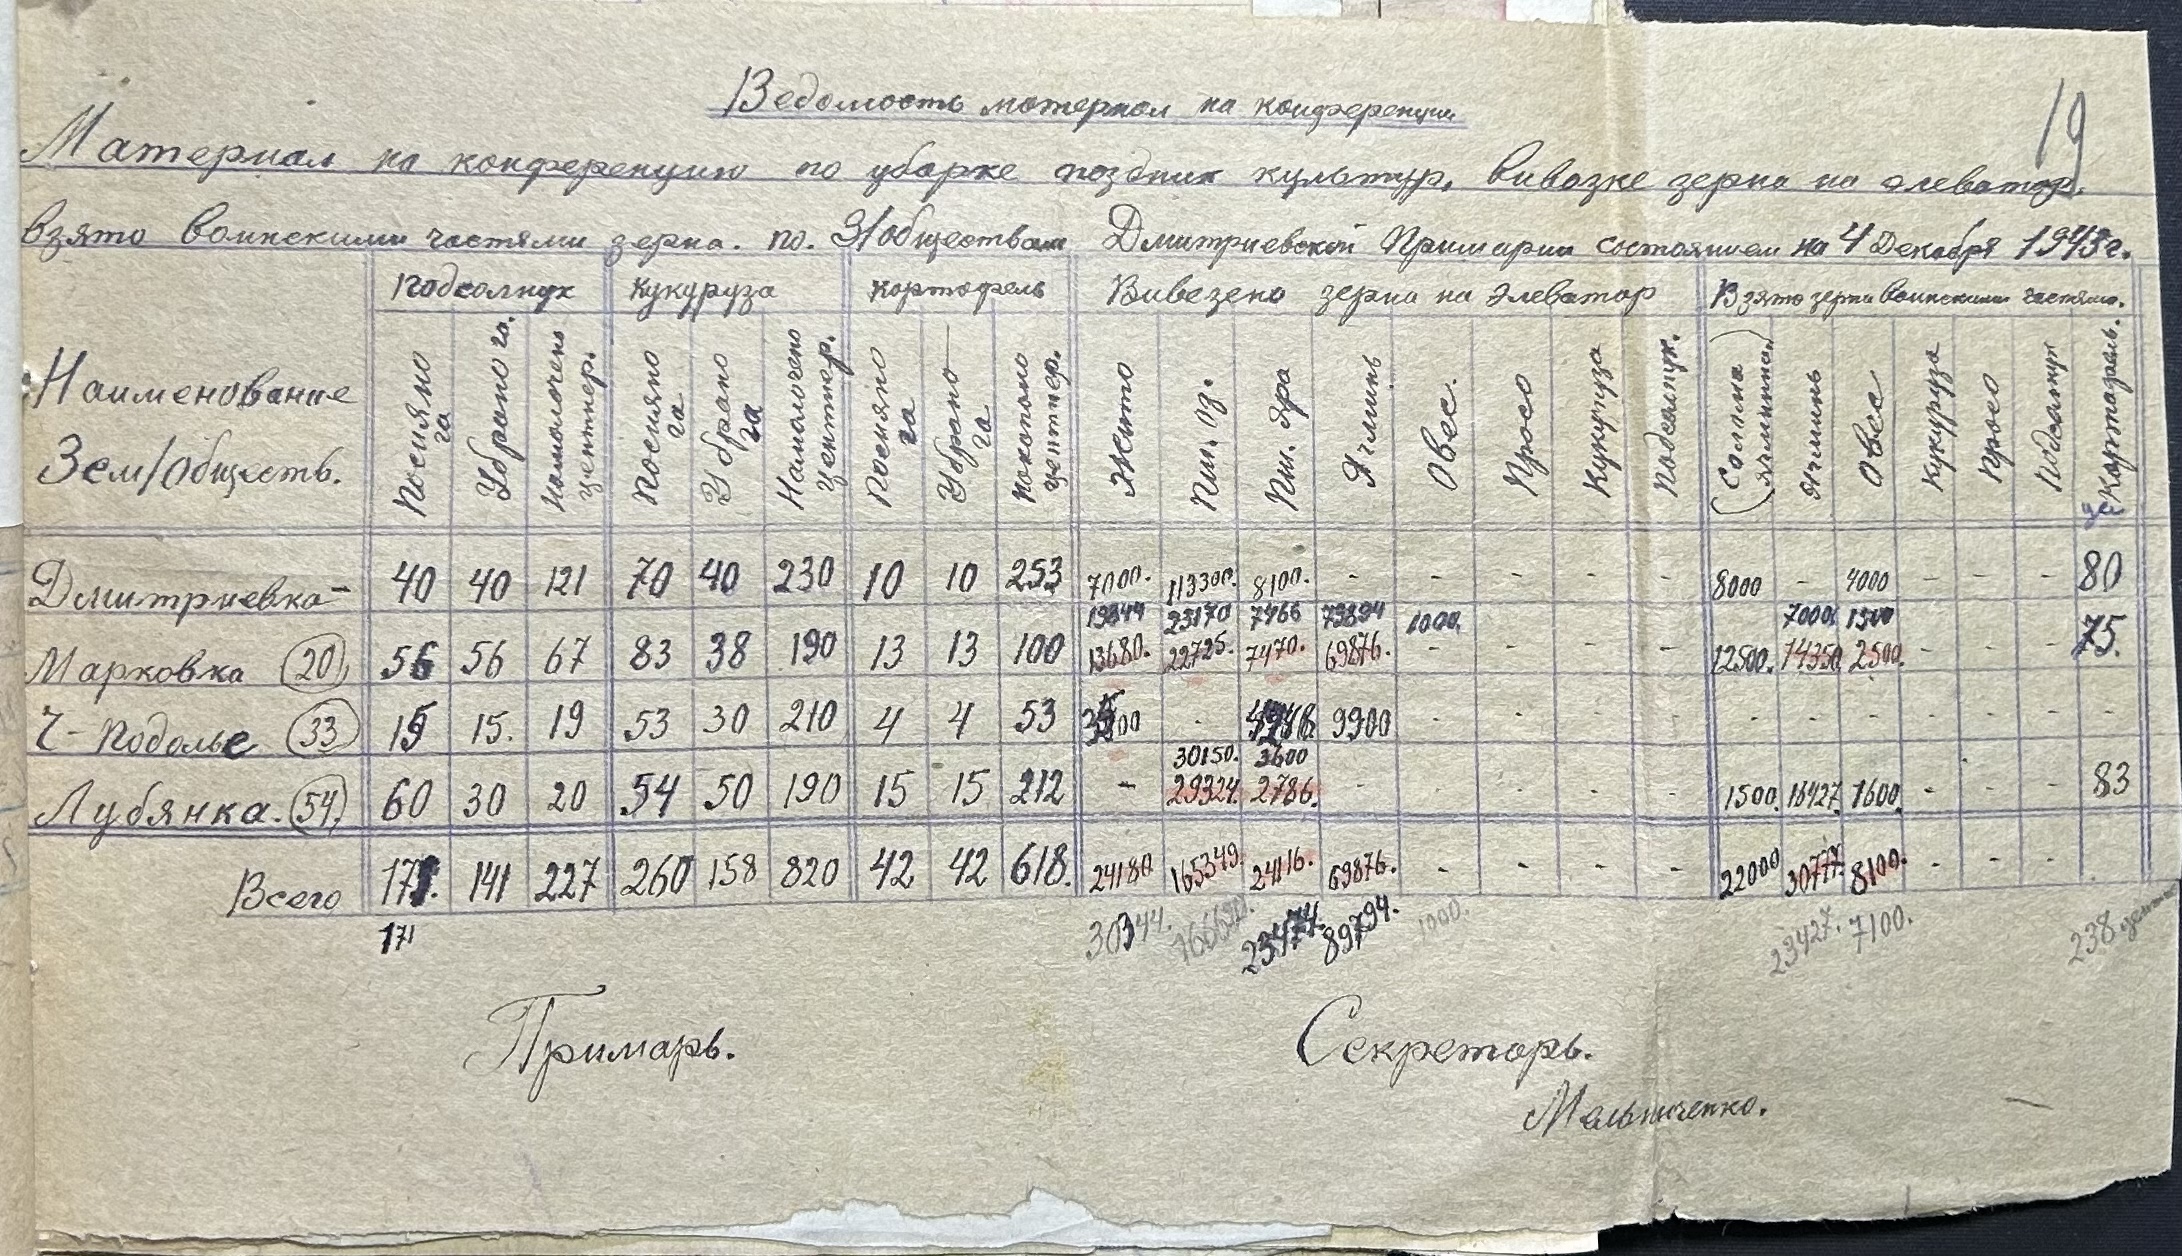 19
Ведомость материал на конференции
Материал на конференцию по уборке поздних культур, вивозке зерна на элеватор,
взято воинскими частями зерна. по. З/обществам Дмитриевской Примарии состоянием на 4 Декабря 1943 г.
Наименование Зем/Обществ. Подсолнух Кукуруза Картофель Вивезено зерна на Элеватор Взято зерна воинскими частями.
Посияно га Убрано га. Намолочено центнер. Посияно га Убрано га Намолочено центнер. Посияно га Убрано га Накопано центнер. Жито Пш. оз. Пш. Яра Ячминь Овес. Просо Кукуруза Подсолнух. (Солома ячминна) Ячминь Овес Кукуруза Просо Подсолнух Картофель.
Дмитриевка - 40 40 121 70 40 230 10 10 253 7000. 113300. 8100. - - - - - 8000 - 4000 - - - 80
19844 23170 7466 79894 1000. 7000. 1500
Марковка (20) 56 56 67 83 38 190 13 13 100 13680. 22725. 7470. 69876. - - - - 12500. 14350 2500. - - - 75.
Ч-Подолье (33) 15 15. 19 53 30 210 4 4 53 - 9900 - - - - - - - - - - -
30150. 3600
Лубянка. (54) 60 30 20 54 50 190 15 15 212 - 29324. 2786. - - - - - 1500. 16427. 1600. - - - 83
Всего 171. 141 227 260 158 820 42 42 618. 24180 165349. 24116. 69876. - - - - 22000 30777. 8100. - - -
171 30344. 23474. 89794. 1000. 23427. 7100. 238
Примарь. Секретарь.
Мальниченко.